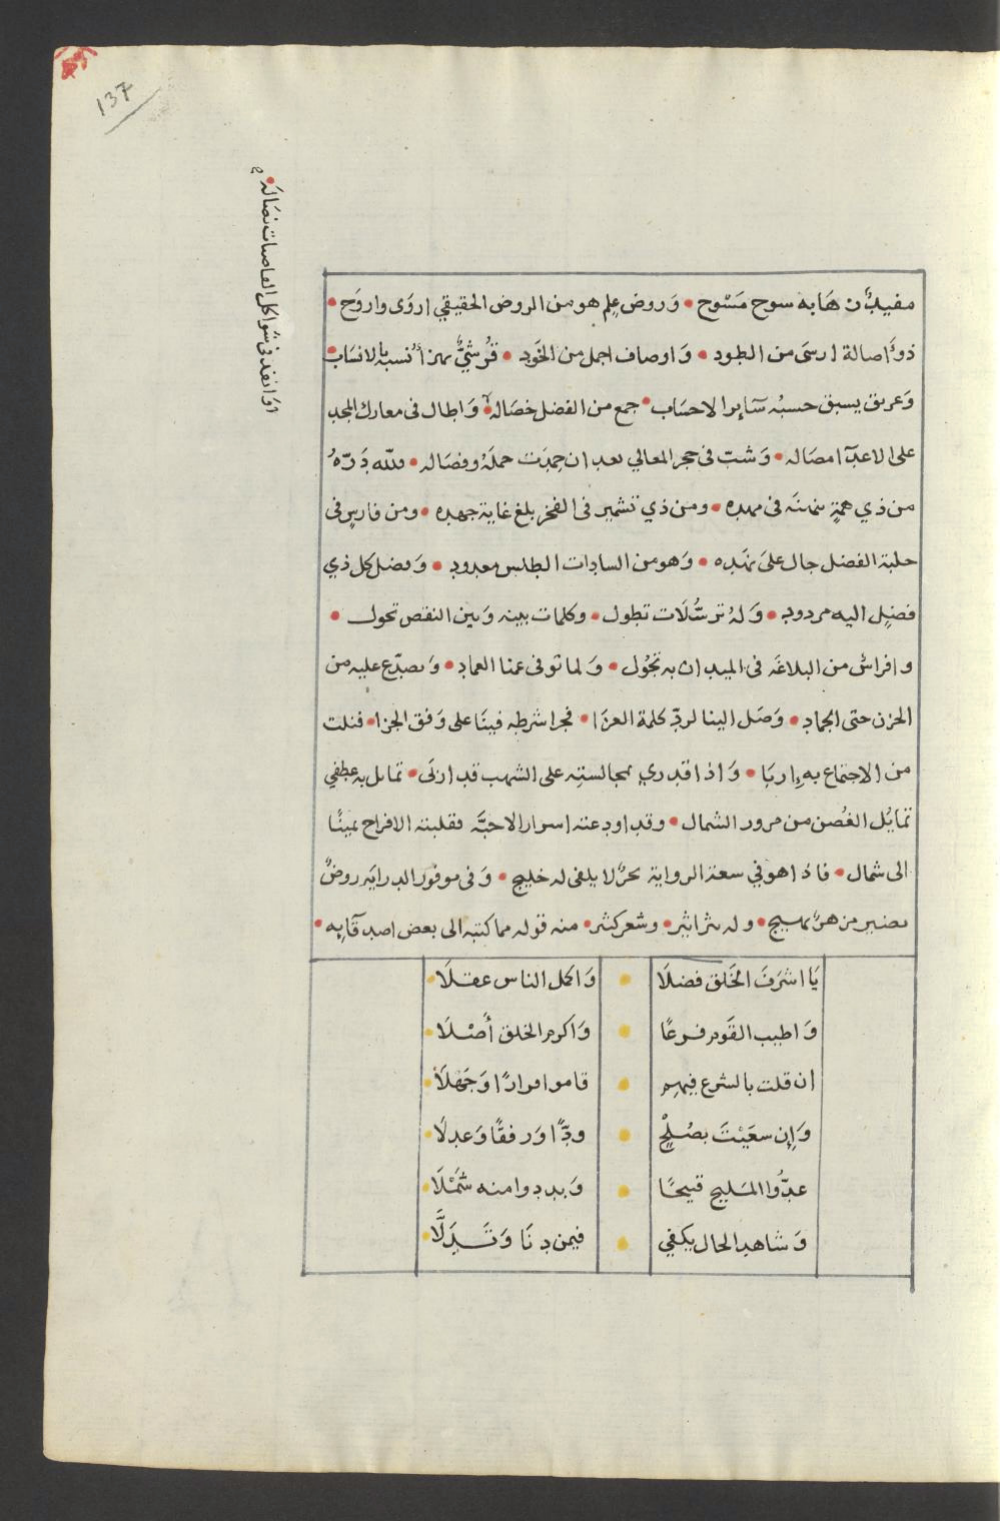 137
وَانفذ فى شواكل العاصيات نصَالهُ •
مفيدٌ ن هَا به سوح مَسْوح • وَروض عِلم هو من الروض الحقيقي اروَى واروَح •
ذوُ اصالة ارسَى من الطود • وَاوصاف اجمل من الخَود • قُرشيٌّ نسبهُ بالانسَاب
وَعريق يسبق حسبُه سَآيرالاحسَاب • جمع من الفضل خصَالهُ • وَاطال فى معارك المجد
على الاعدَآ مصَاله • وَشب فى حجر المعالي بعد ان حمِدَت حملَهُ وفصَاله • فلله دَرّهُ
من ذي همةٍ فى مهده • ومن ذي تشمير فى الفخر بلغ غاية جهده • ومن فارسٍ فى
حلبة الفضل جال علىَ نهَده • وَهو من السادات الطلس معدود • وَفضل كل ذي
فضلٍ اليه مردود • وَلهُ ترسُّلَات تطول • وكلمات بينه وَبين النقص تحول •
وافراسٌ من البلاغَه فى الميدان به تجُول • وَلما توفى عمنا العماد • وَتصدّع عليه من
الحزن حتى الجماد • وَصَل الينا لردّ كلمة العزَا • فجرا شرطه فينَا على وَفق الجزا • فنلت
من الاجتماع به إِربَا • وَاذا قدري بمجالستِه على الشهب قد اربَى • تمايل به عطفي
تمايُل الغُصن من مرور الشمال • وقد اودعته اسرار الاحبَّه فقلبته الافراح يمينًا
الى شمال • فاذا هو في سعة الرواية بحرٌ لا يلفى له خليج • وَفى موفور الدرايَه روضٌ
نضير من هرٌ بهيج • وله نثر اثير • وشعر كثير • منه قوله مما كتبه الى بعض اصدقآيه •
يَا اشرَفَ الخَلق فضلَا • وَاكمل الناس عقلَا •
وَاطيب القَوم فرعًا • وَاكرم الخلق أَصْلَا •
ان قلت بالشرع فيهم • قاموا مرادًا وَجَهْلَا •
وَإِن سعَيْتَ بصُلْحٍ • ودًّا وَرفقًا وَعدلَا •
عدُّوا المَليح قبيحًا • وَبددوا منه شَمْلَا •
وَشاهد الحال يكفي • فيمن دنَا وَتَدَلَّا •